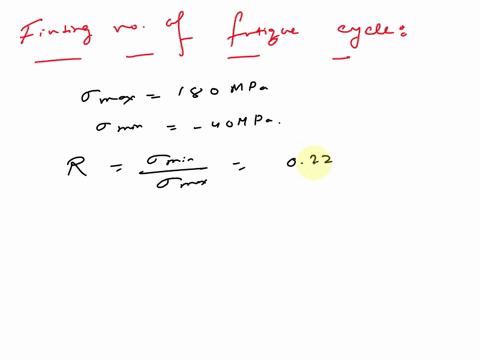 Finting no. of fatigue cycle:
σmax = 180 MPa
σmin = -40MPa.
R = σmin / σmax = 0.22